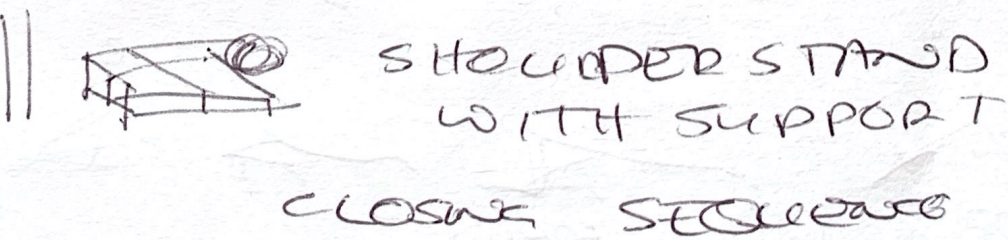 SHOULDER STAND
WITH SUPPORT
CLOSING SEQUENCE